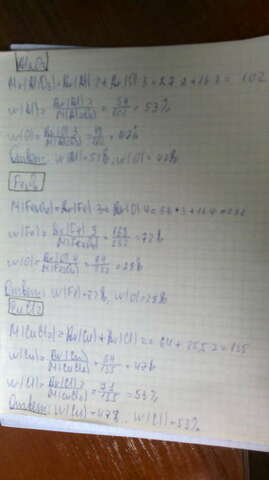 Al₂O₃
Mr(Al₂O₃)=Ar(Al)·2+Ar(O)·3=27·2+16·3=102
w(Al)=Ar(Al)·2/M(Al₂O₃)=54/102=53%
w(O)=Ar(O)·3/M(Al₂O₃)=48/102=47%
Ответ: w(Al)=53%, w(O)=47%
Fe₃O₄
M(Fe₃O₄)=Ar(Fe)·3+Ar(O)·4=56·3+16·4=232
w(Fe)=Ar(Fe)·3/M(Fe₃O₄)=168/232=72%
w(O)=Ar(O)·4/M(Fe₃O₄)=64/232=28%
Ответ: w(Fe)=72%, w(O)=28%
CuCl₂
M(CuCl₂)=Ar(Cu)+Ar(Cl)·2=64+35,5·2=135
w(Cu)=Ar(Cu)/M(CuCl₂)=64/135=47%
w(Cl)=Ar(Cl)·2/M(CuCl₂)=71/135=53%
Ответ: w(Cu)=47%, w(Cl)=53%